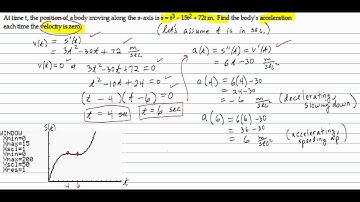 At time t, the position of a body moving along the s-axis is s = t³ - 15t² + 72t m. Find the body's acceleration
each time the velocity is zero.
(let's assume t is in sec.)
v(t) = s'(t)
= 3t² - 30t + 72 m/sec
v(t) = 0 at 3t² - 30t + 72 = 0
t² - 10t + 24 = 0
(t - 4)(t - 6) = 0
t = 4 sec t = 6 sec
a(t) = s''(t) = v'(t)
= 6t - 30 m/sec²
a(4) = 6(4) - 30
= 24 - 30
= -6 m/sec² (decelerating, slowing down)
a(6) = 6(6) - 30
= 36 - 30
= 6 m/sec² (accelerating, speeding up)
WINDOW
Xmin=0
Xmax=15
Xscl=1
Ymin=0
Ymax=200
Yscl=50
Xres=1
s(t)
4 6 t